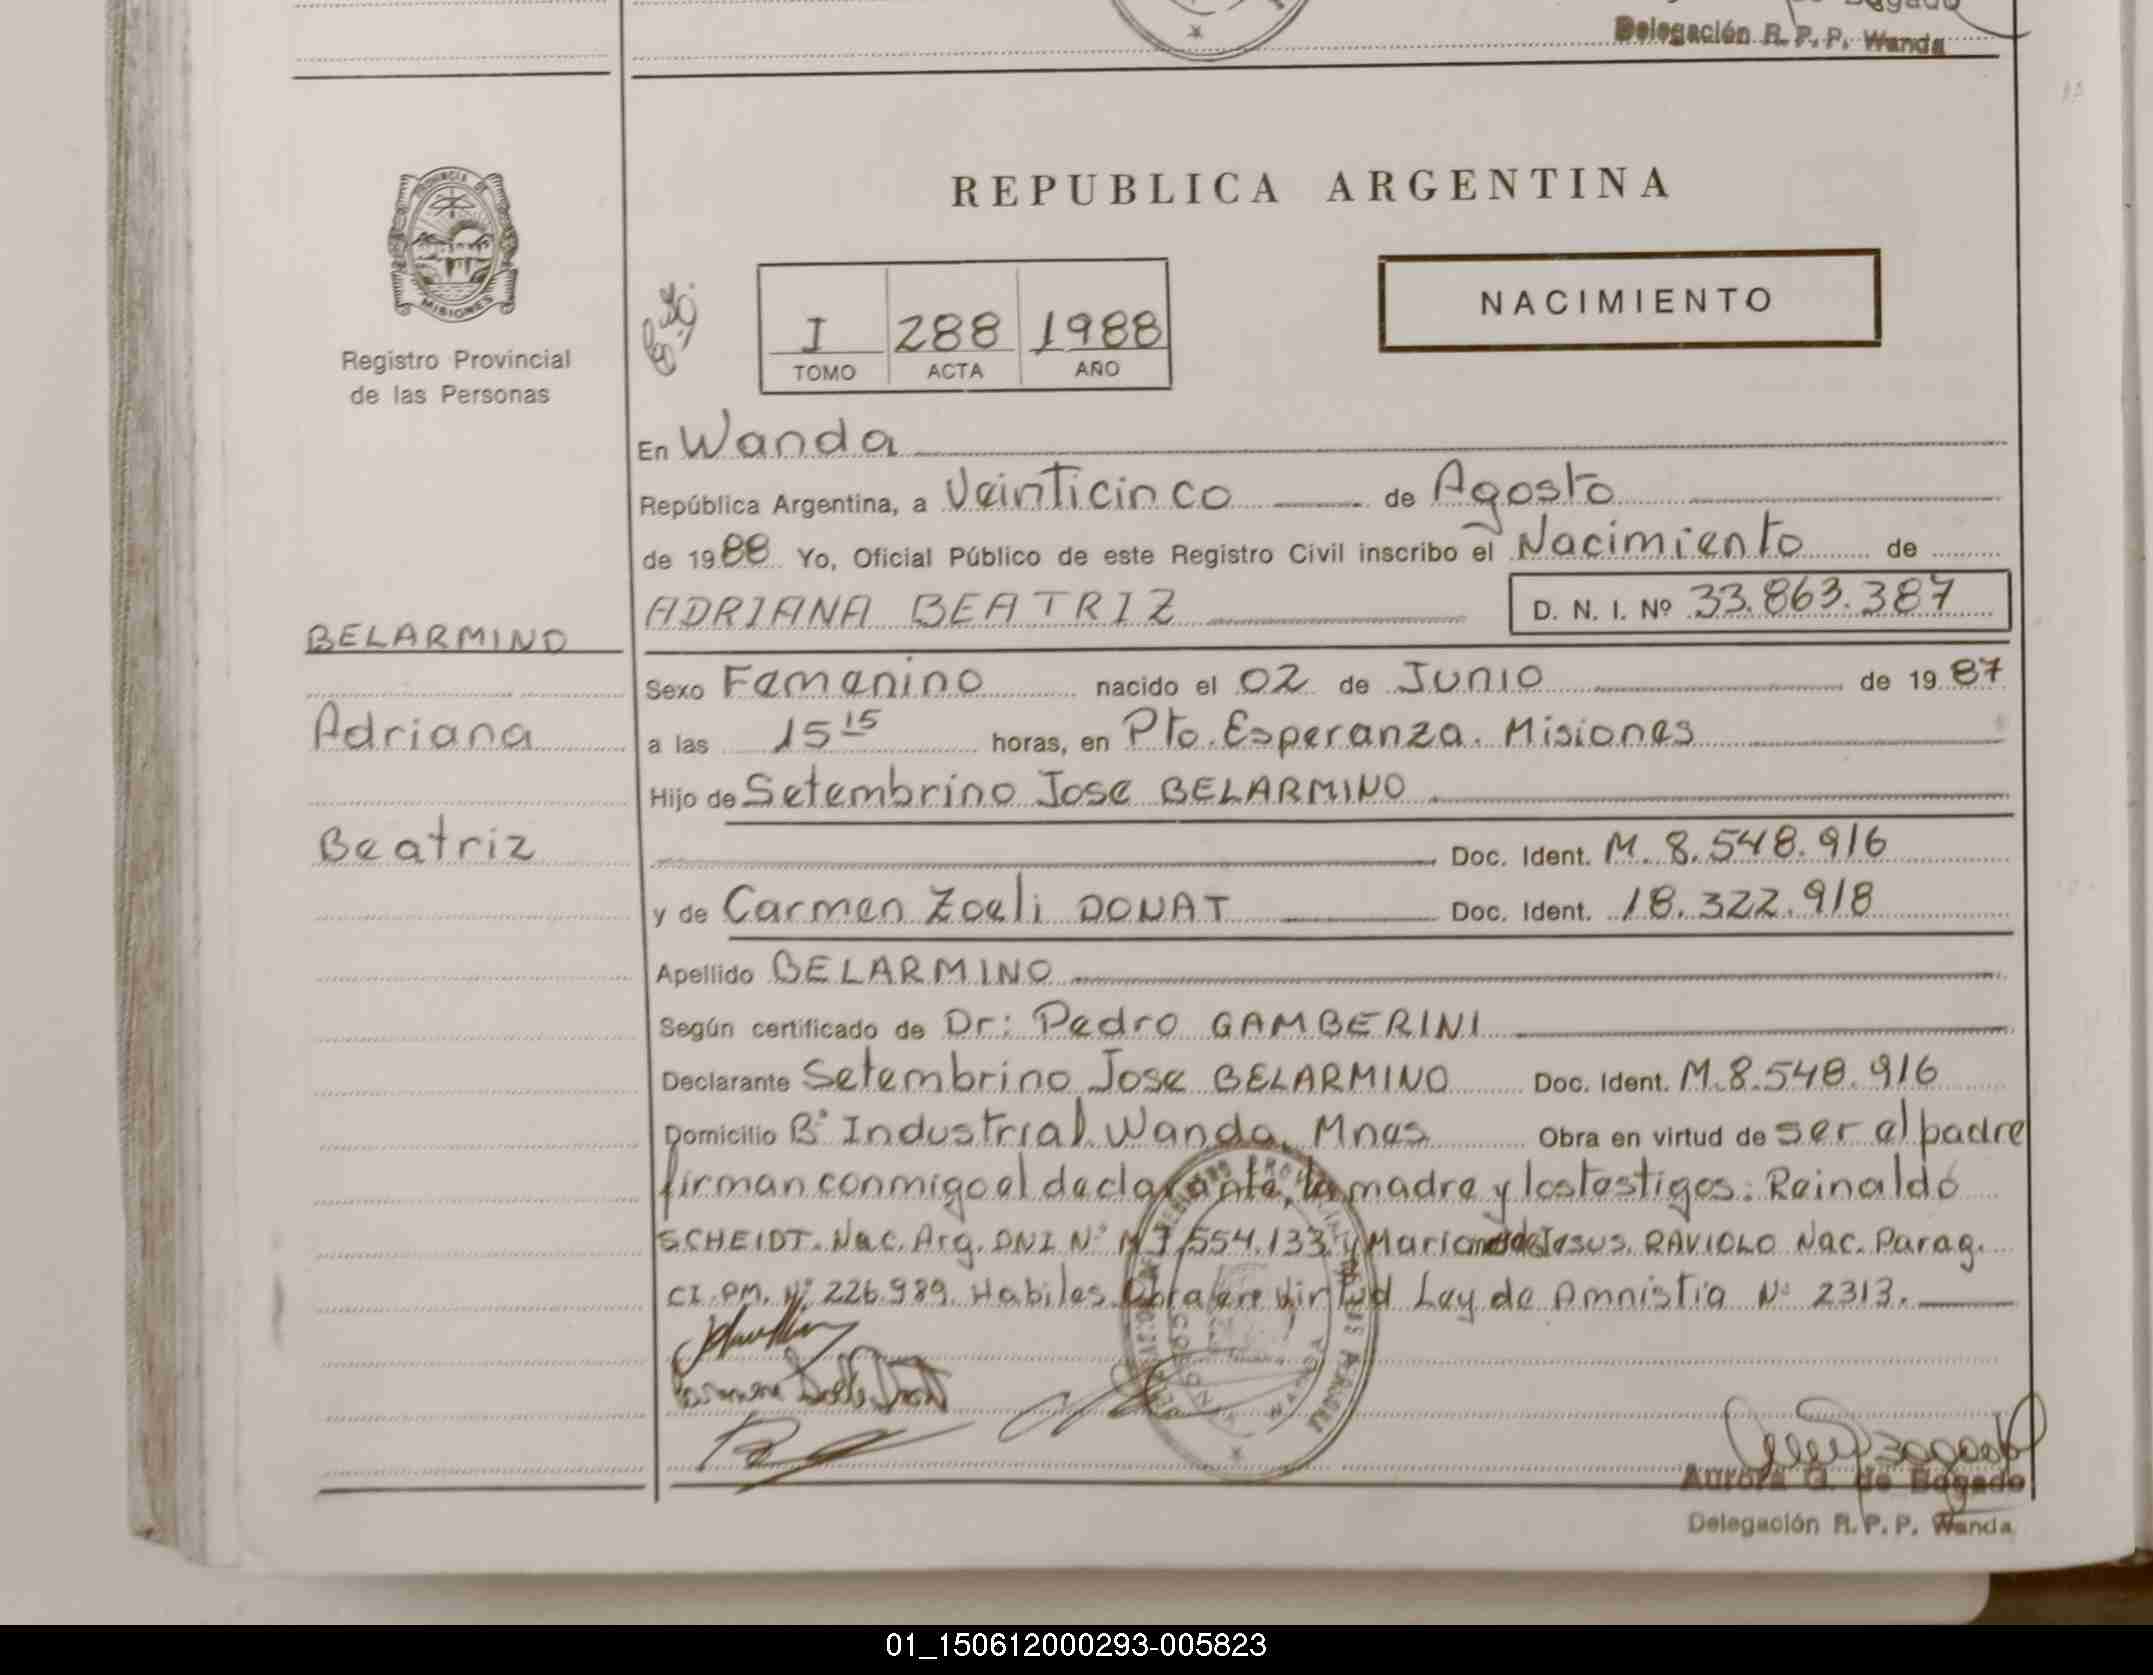 Delegación R. P. P. Wanda
PROVINCIA DE
MISIONES
Registro Provincial
de las Personas
REPUBLICA ARGENTINA
I 288 1988
TOMO ACTA AÑO
NACIMIENTO
En Wanda
República Argentina, a Veinticinco de Agosto
de 1988 Yo, Oficial Público de este Registro Civil inscribo el Nacimiento de
ADRIANA BEATRIZ D. N. I. Nº 33.863.387
BELARMINO
Sexo Femenino nacido el 02 de Junio de 1987
Adriana
a las 15 15 horas, en Pto. Esperanza. Misiones
Hijo de Setembrino Jose BELARMINO
Beatriz
Doc. Ident. M. 8.548.916
y de Carmen Zoeli DONAT Doc. Ident. 18.322.918
Apellido BELARMINO
Según certificado de Dr: Pedro GAMBERINI
Declarante Setembrino Jose BELARMINO Doc. Ident. M.8.548.916
Domicilio Bº Industrial Wanda, Mnes Obra en virtud de ser el padre
firman conmigo el declarante, la madre y los testigos: Reinaldo
SCHEIDT. Nac. Arg. DNI Nº M 7,554.133 y Mariano de Jesus RAVIOLO Nac. Parag.
CI. PM. Nº 226.989. Habiles. Obra en virtud Ley de Amnistia Nº 2313.
WANDA
Aurora G. de Bogado
Delegación R. P. P. Wanda
01_150612000293-005823